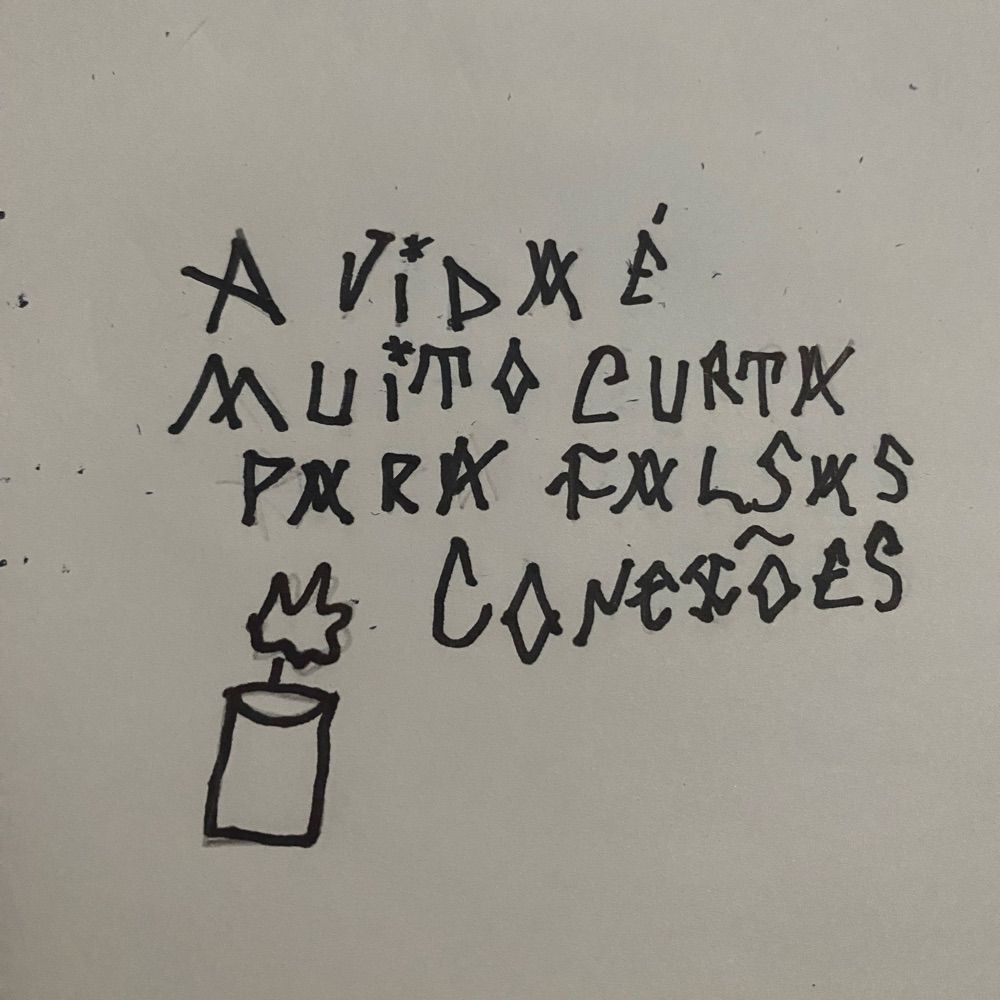 A ViDA É
MUiTO CURTA
PARA FALSAS
CONEXÕES